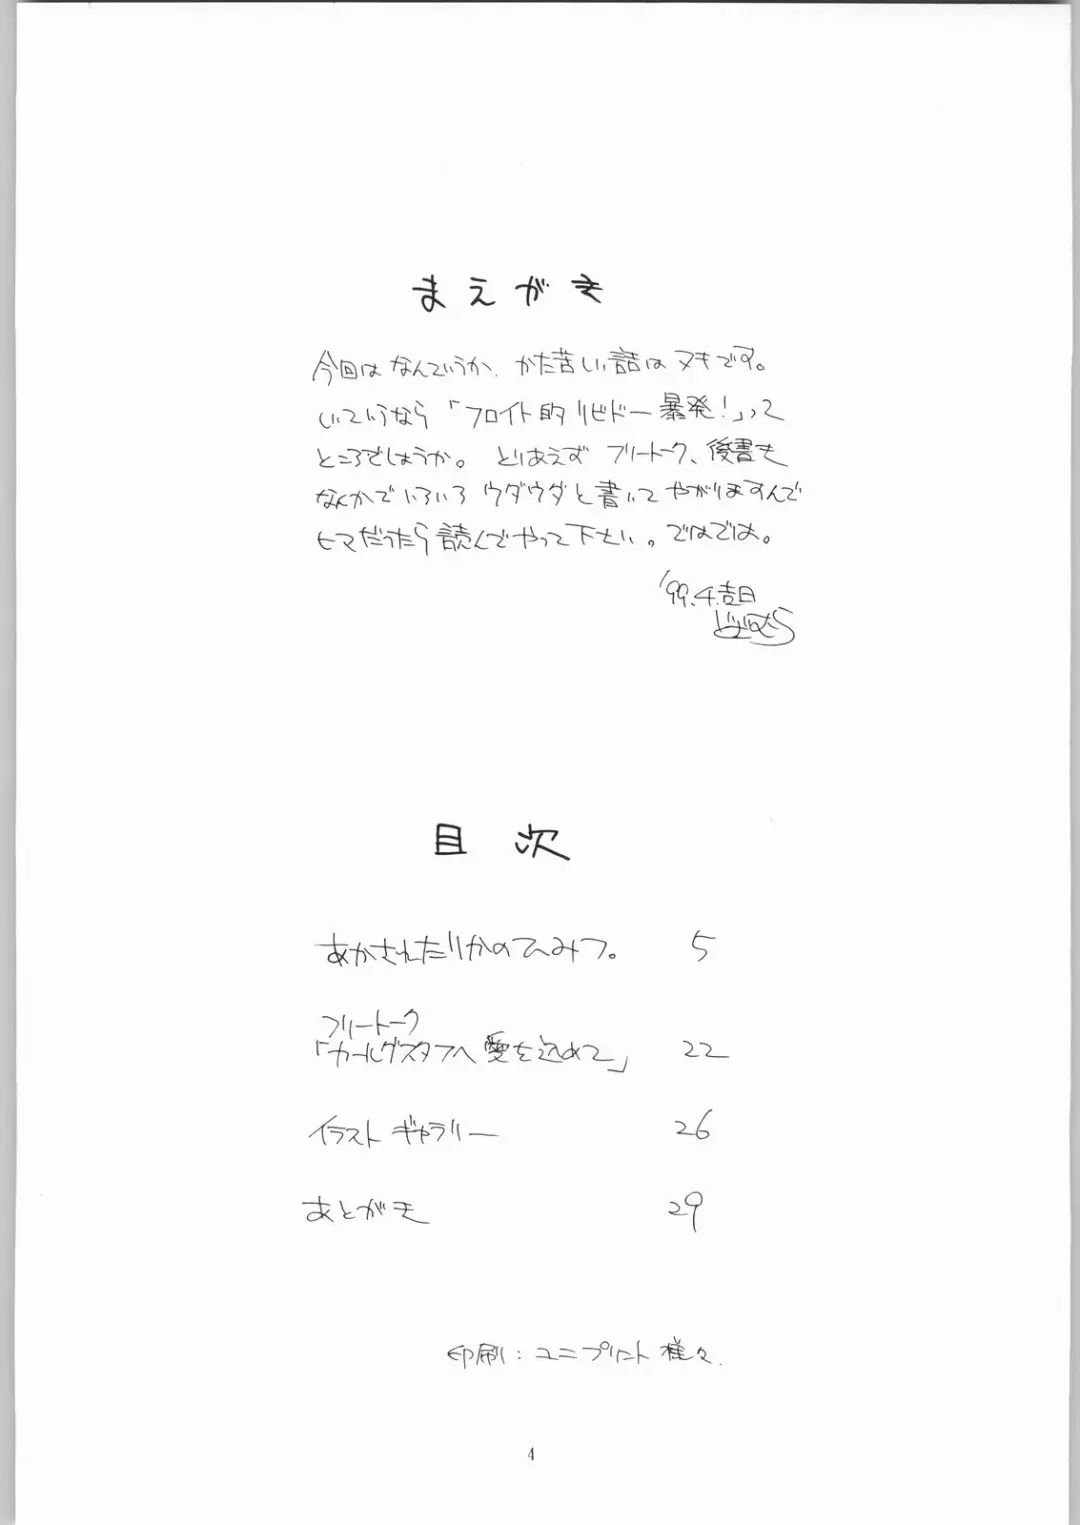 まえがき
今回はなんていうか、かた苦しい話はヌキです。
いっていうなら「フロイト的リビドー暴発！」って
ところでしょうか。とりあえず フリートーク、後書も
なんかでいろいろ ウダウダと書いて やがりますんで
ヒマだったら読んでやって下さい。ではでは。
'99.4.吉日
目次
あかされたりかのひみつ。 5
フリートーク
「カールグスタフへ愛を込めて」 22
イラストギャラリー 26
あとがき 29
印刷：ユニプリント様々.
4